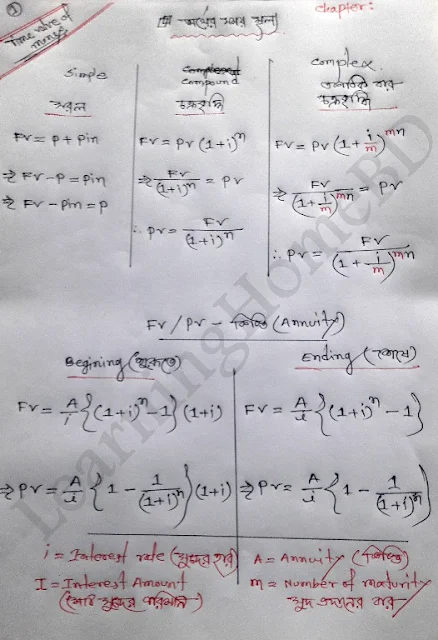 ①
Time value of money
অর্থের সময় মূল্য
chapter:
Simple
সরল
Fv = p + pin
⇒ Fv - p = pin
⇒ Fv - pin = p
Compound
চক্রবৃদ্ধি
Fv = Pv (1+i)^n
⇒ Fv/(1+i)^n = Pv
∴ Pv = Fv/(1+i)^n
Complex
একাধিক বার
চক্রবৃদ্ধি
Fv = Pv (1 + i/m)^mn
⇒ Fv/(1 + i/m)^mn = Pv
∴ Pv = Fv/(1 + i/m)^mn
Fv / Pv - কিস্তি (Annuity)
Begining (শুরুতে)
Fv = A/i {(1+i)^n - 1} (1+i)
⇒ Pv = A/i {1 - 1/(1+i)^n} (1+i)
Ending (শেষে)
Fv = A/i {(1+i)^n - 1}
⇒ Pv = A/i {1 - 1/(1+i)^n}
i = Interest rate (সুদের হার)
I = Interest Amount
(মোট সুদের পরিমাণ)
A = Annuity (কিস্তি)
m = Number of maturity
সুদ বার
LearningHomeBD